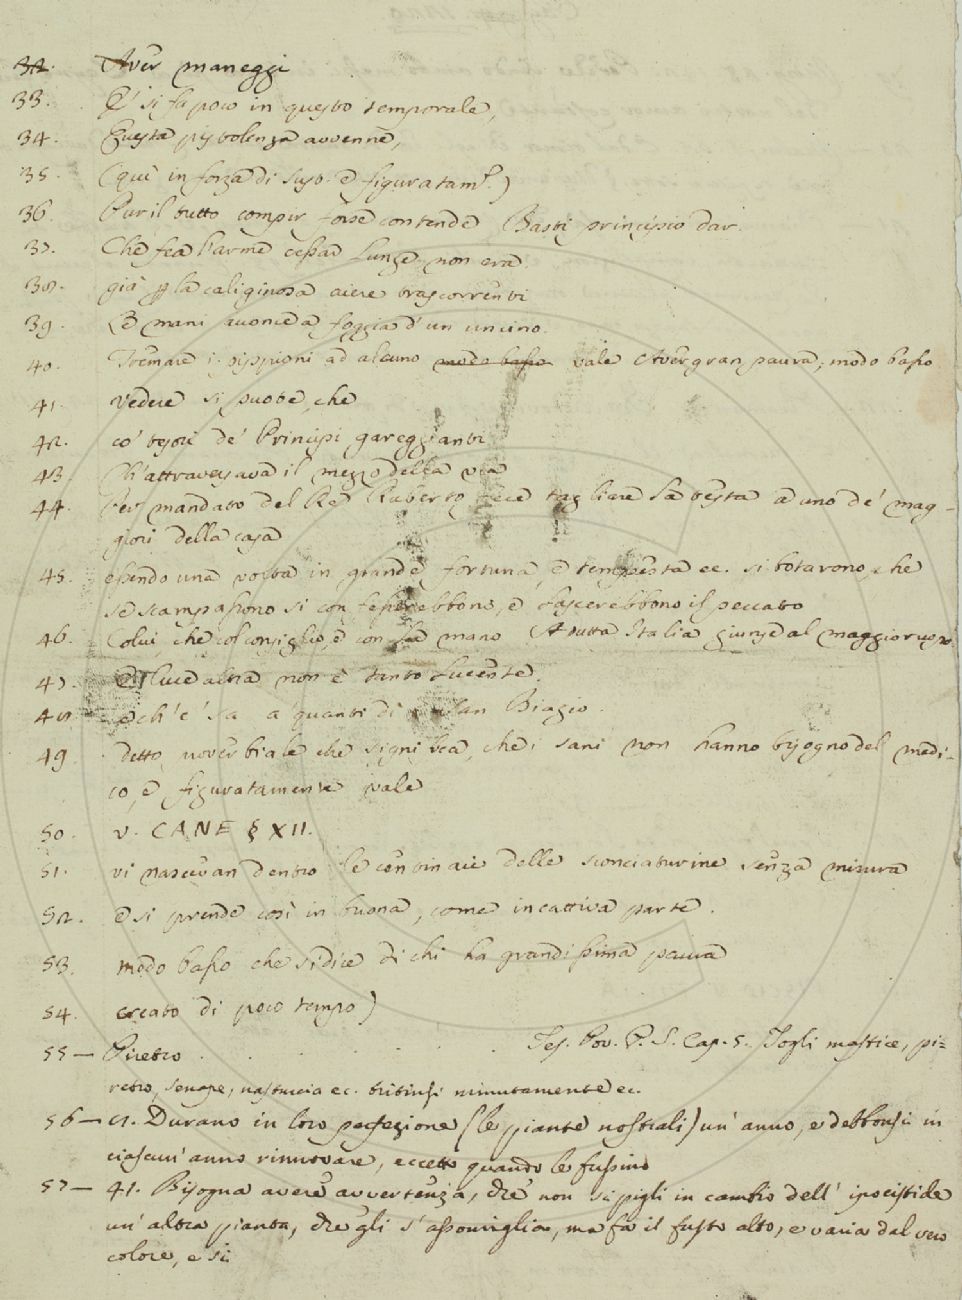 32. Aver maneggi
33. E' si fa poco in questo temporale,
34. Questa pistolenza avvenne,
35. (quì in forza di sust. e figuratam.)
36. Pur il tutto compir forse contende Basti principio dar.
37. Che fea l'arme cessar lunge non era.
38. già p la caliginosa aiere trascorrenti
39. Le mani avonce a foggia d'un uncino.
40. Tremare i pippioni ad alcuno modo basso vale Aver gran paura; modo basso
41. vedere si puote, che
42. co' tesori de' Principi gareggianti
43. Ch'attraversava il mezzo della via
44. Per mandato del Re Ruberto fece tagliare la testa a uno de' mag-
giori della casa
45. essendo una volta in grande fortuna, e tempesta ec. si botarono, che
se scampassono si confesserebbono, e lascerebbono il peccato
46. Colui, che col consiglio, e con la mano A tutta Italia giunse al maggior uopo
47. e luce altra non è tanto lucente.
48. e ch'e' sa a quanti dì è San Biagio.
49. detto proverbiale che significa, che i sani non hanno bisogno del medi-
co, e figuratamente vale
50. v. CANE § XII.
51. vi nascevan dentro le centinaie delle sconciaturine senza misura
52. e si prende così in buona, come in cattiva parte.
53. modo basso che si dice di chi ha grandissima paura
54. creato di poco tempo)
55 — Piretro . . . . . . . Tes. Pov. P. S. Cap. 5. Togli mastice, pi=
retro, senape, nasturcia ec. tritinsi minutamente ec.
56 — Durano in loro perfezione (le piante nostrali) un' anno, e debbonsi in
ciascun' anno rinnovare, eccetto quando le fussino
57 — 41. Bisogna avere avvertenza, che non si pigli in cambio dell' ipocistide
un' altra pianta, che gli s' assomiglia, ma fa il fusto alto, e varia dal vero
colore, e si